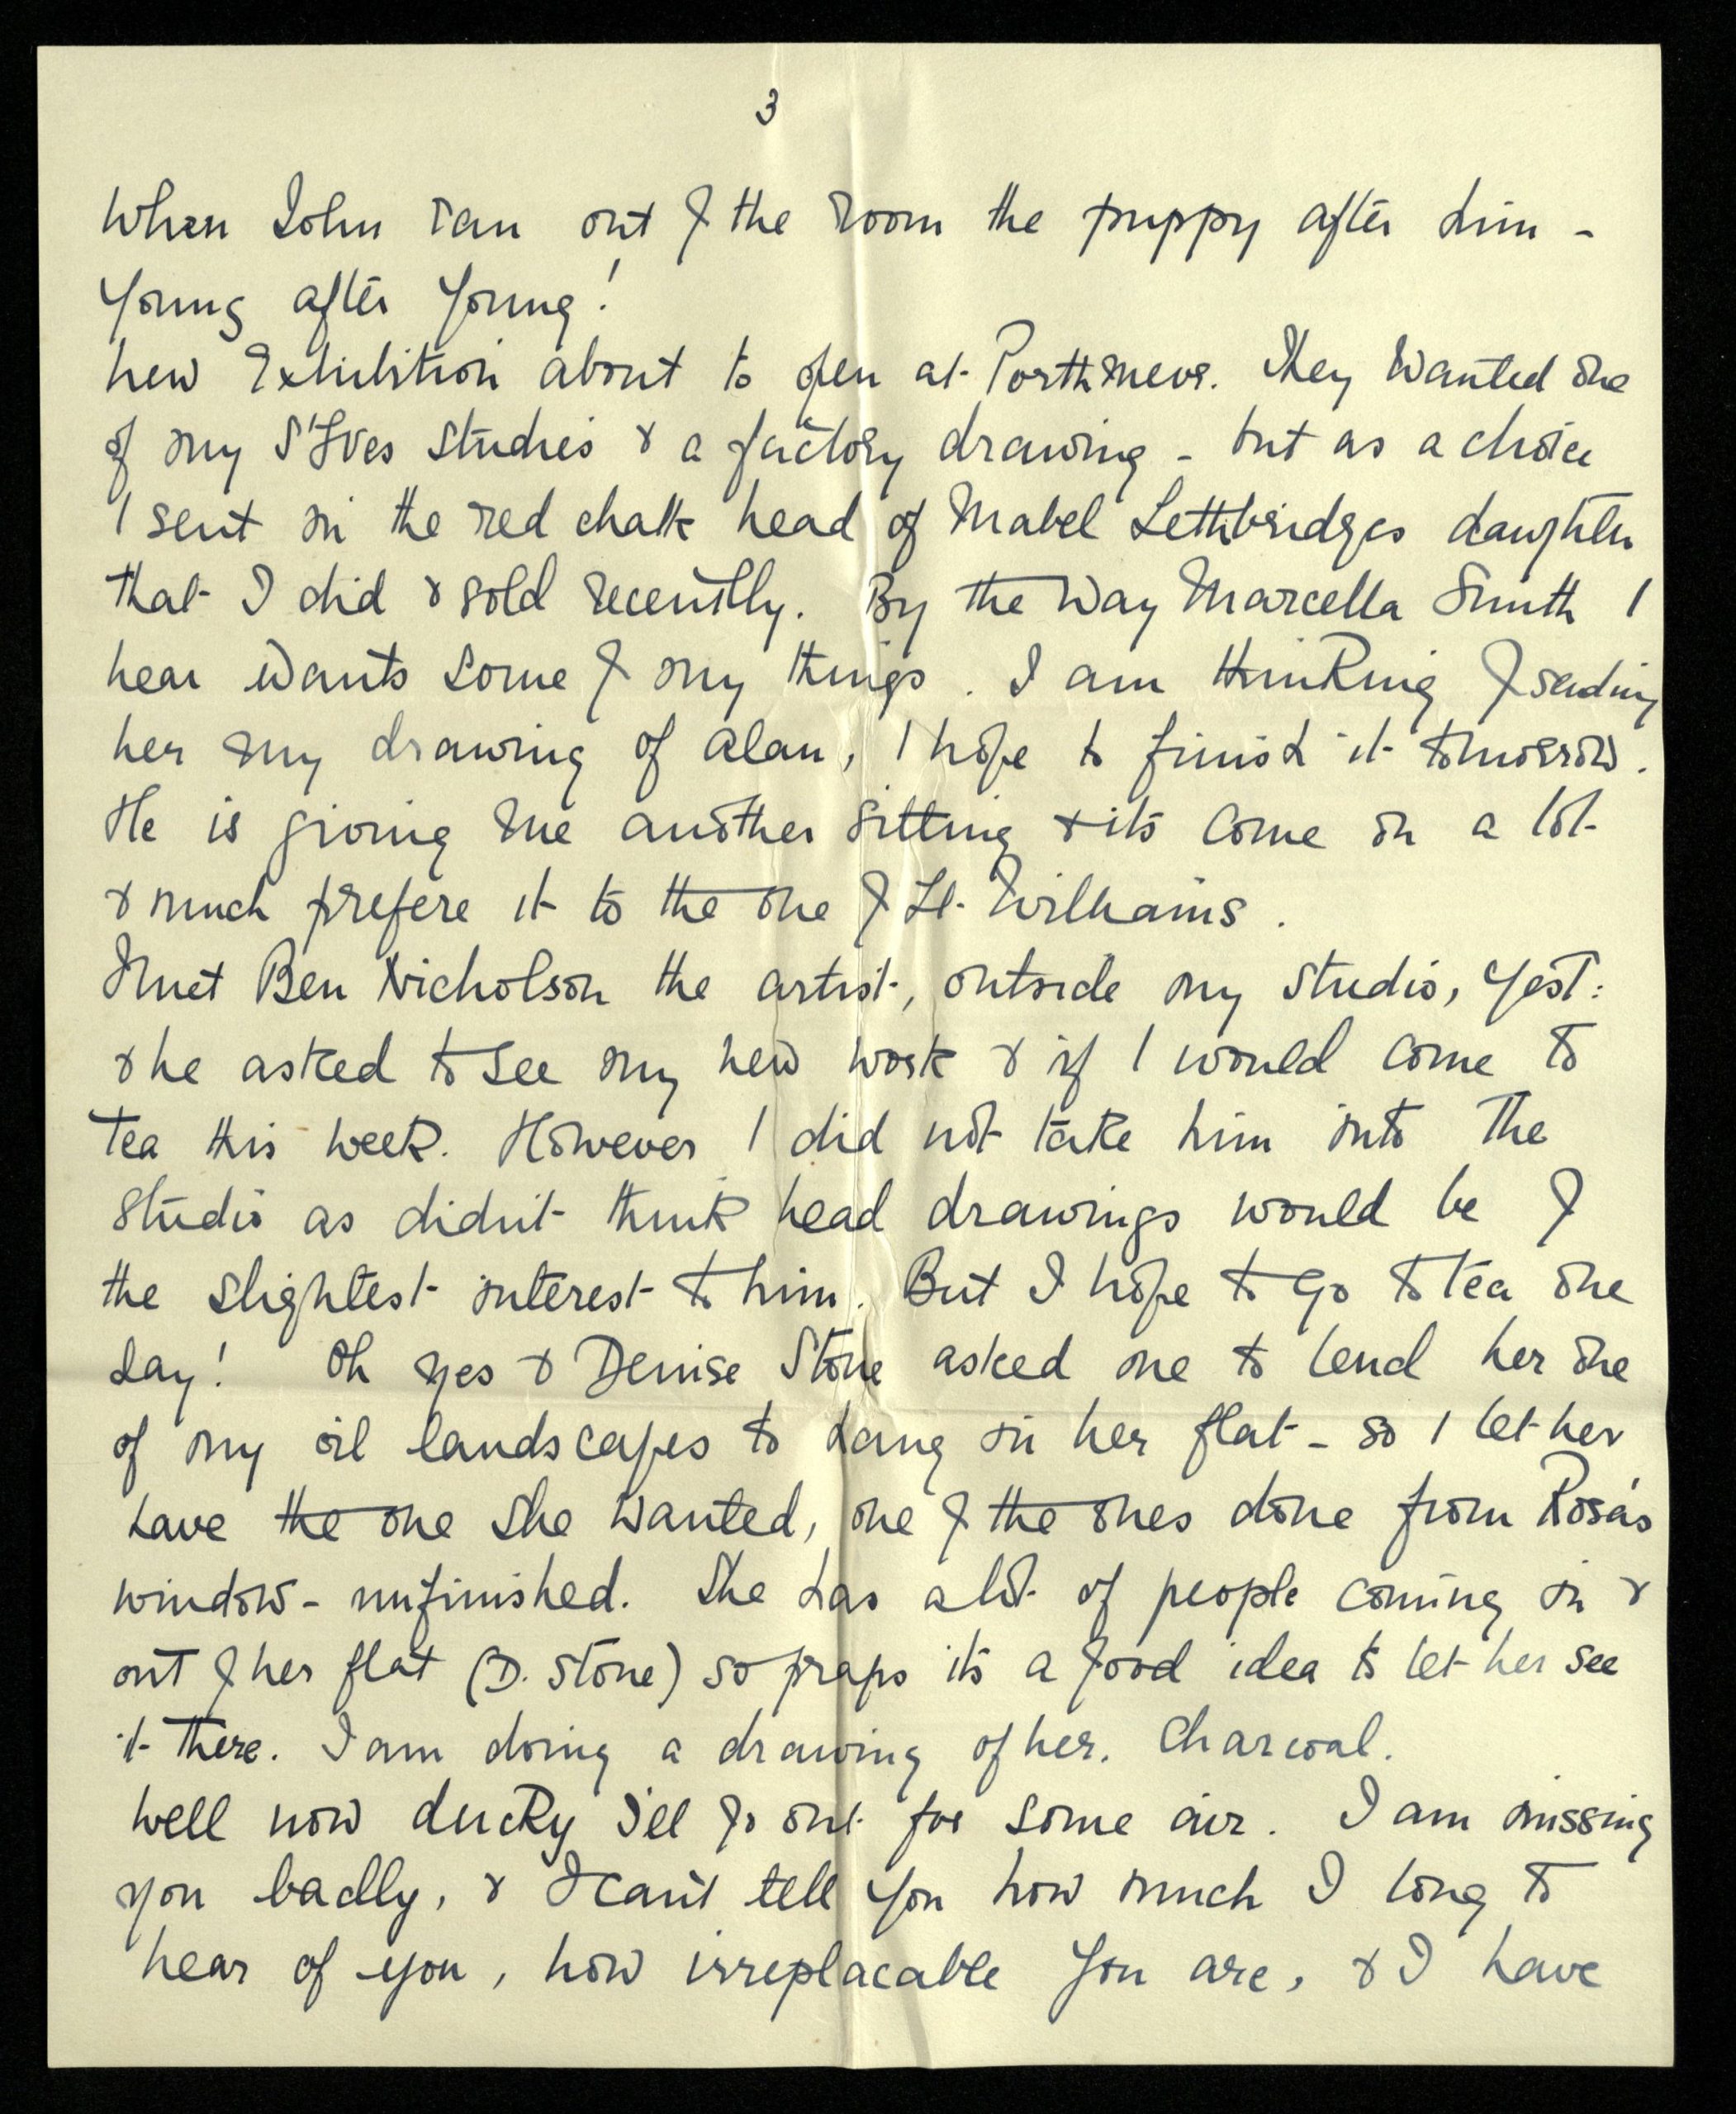 3
When John ran out of the room the puppy after him -
Young after Young!
New Exhibition about to open at Porthmeor. They wanted one
of my S'Ives studies & a factory drawing - but as a choice
I sent in the red chalk head of Mabel Lethbridges daughter
that I did & sold recently. By the way Marcella Smith I
hear wants some of my things. I am thinking of sending
her my drawing of Alan, I hope to finish it tomorrow.
He is giving me another sitting & its come on a lot
& much prefere it to the one of Lt. Williams.
Met Ben Nicholson the artist, outside my studio, yest:
& he asked to see my new work & if I would come to
tea this week. However I did not take him into the
studio as didn't think head drawings would be of
the slightest interest to him. But I hope to go to tea one
day! Oh yes & Denise Stone asked me to lend her one
of my oil landscapes to hang in her flat - so I let her
have the one she wanted, one of the ones done from Rosa's
window - unfinished. She has a lot of people coming in &
out of her flat (D. Stone) so praps its a good idea to let her see
it there. I am doing a drawing of her. Charcoal.
Well now ducky I'll go out for some air. I am missing
you badly, & I can't tell you how much I long to
hear of you, how irreplacable you are, & I have